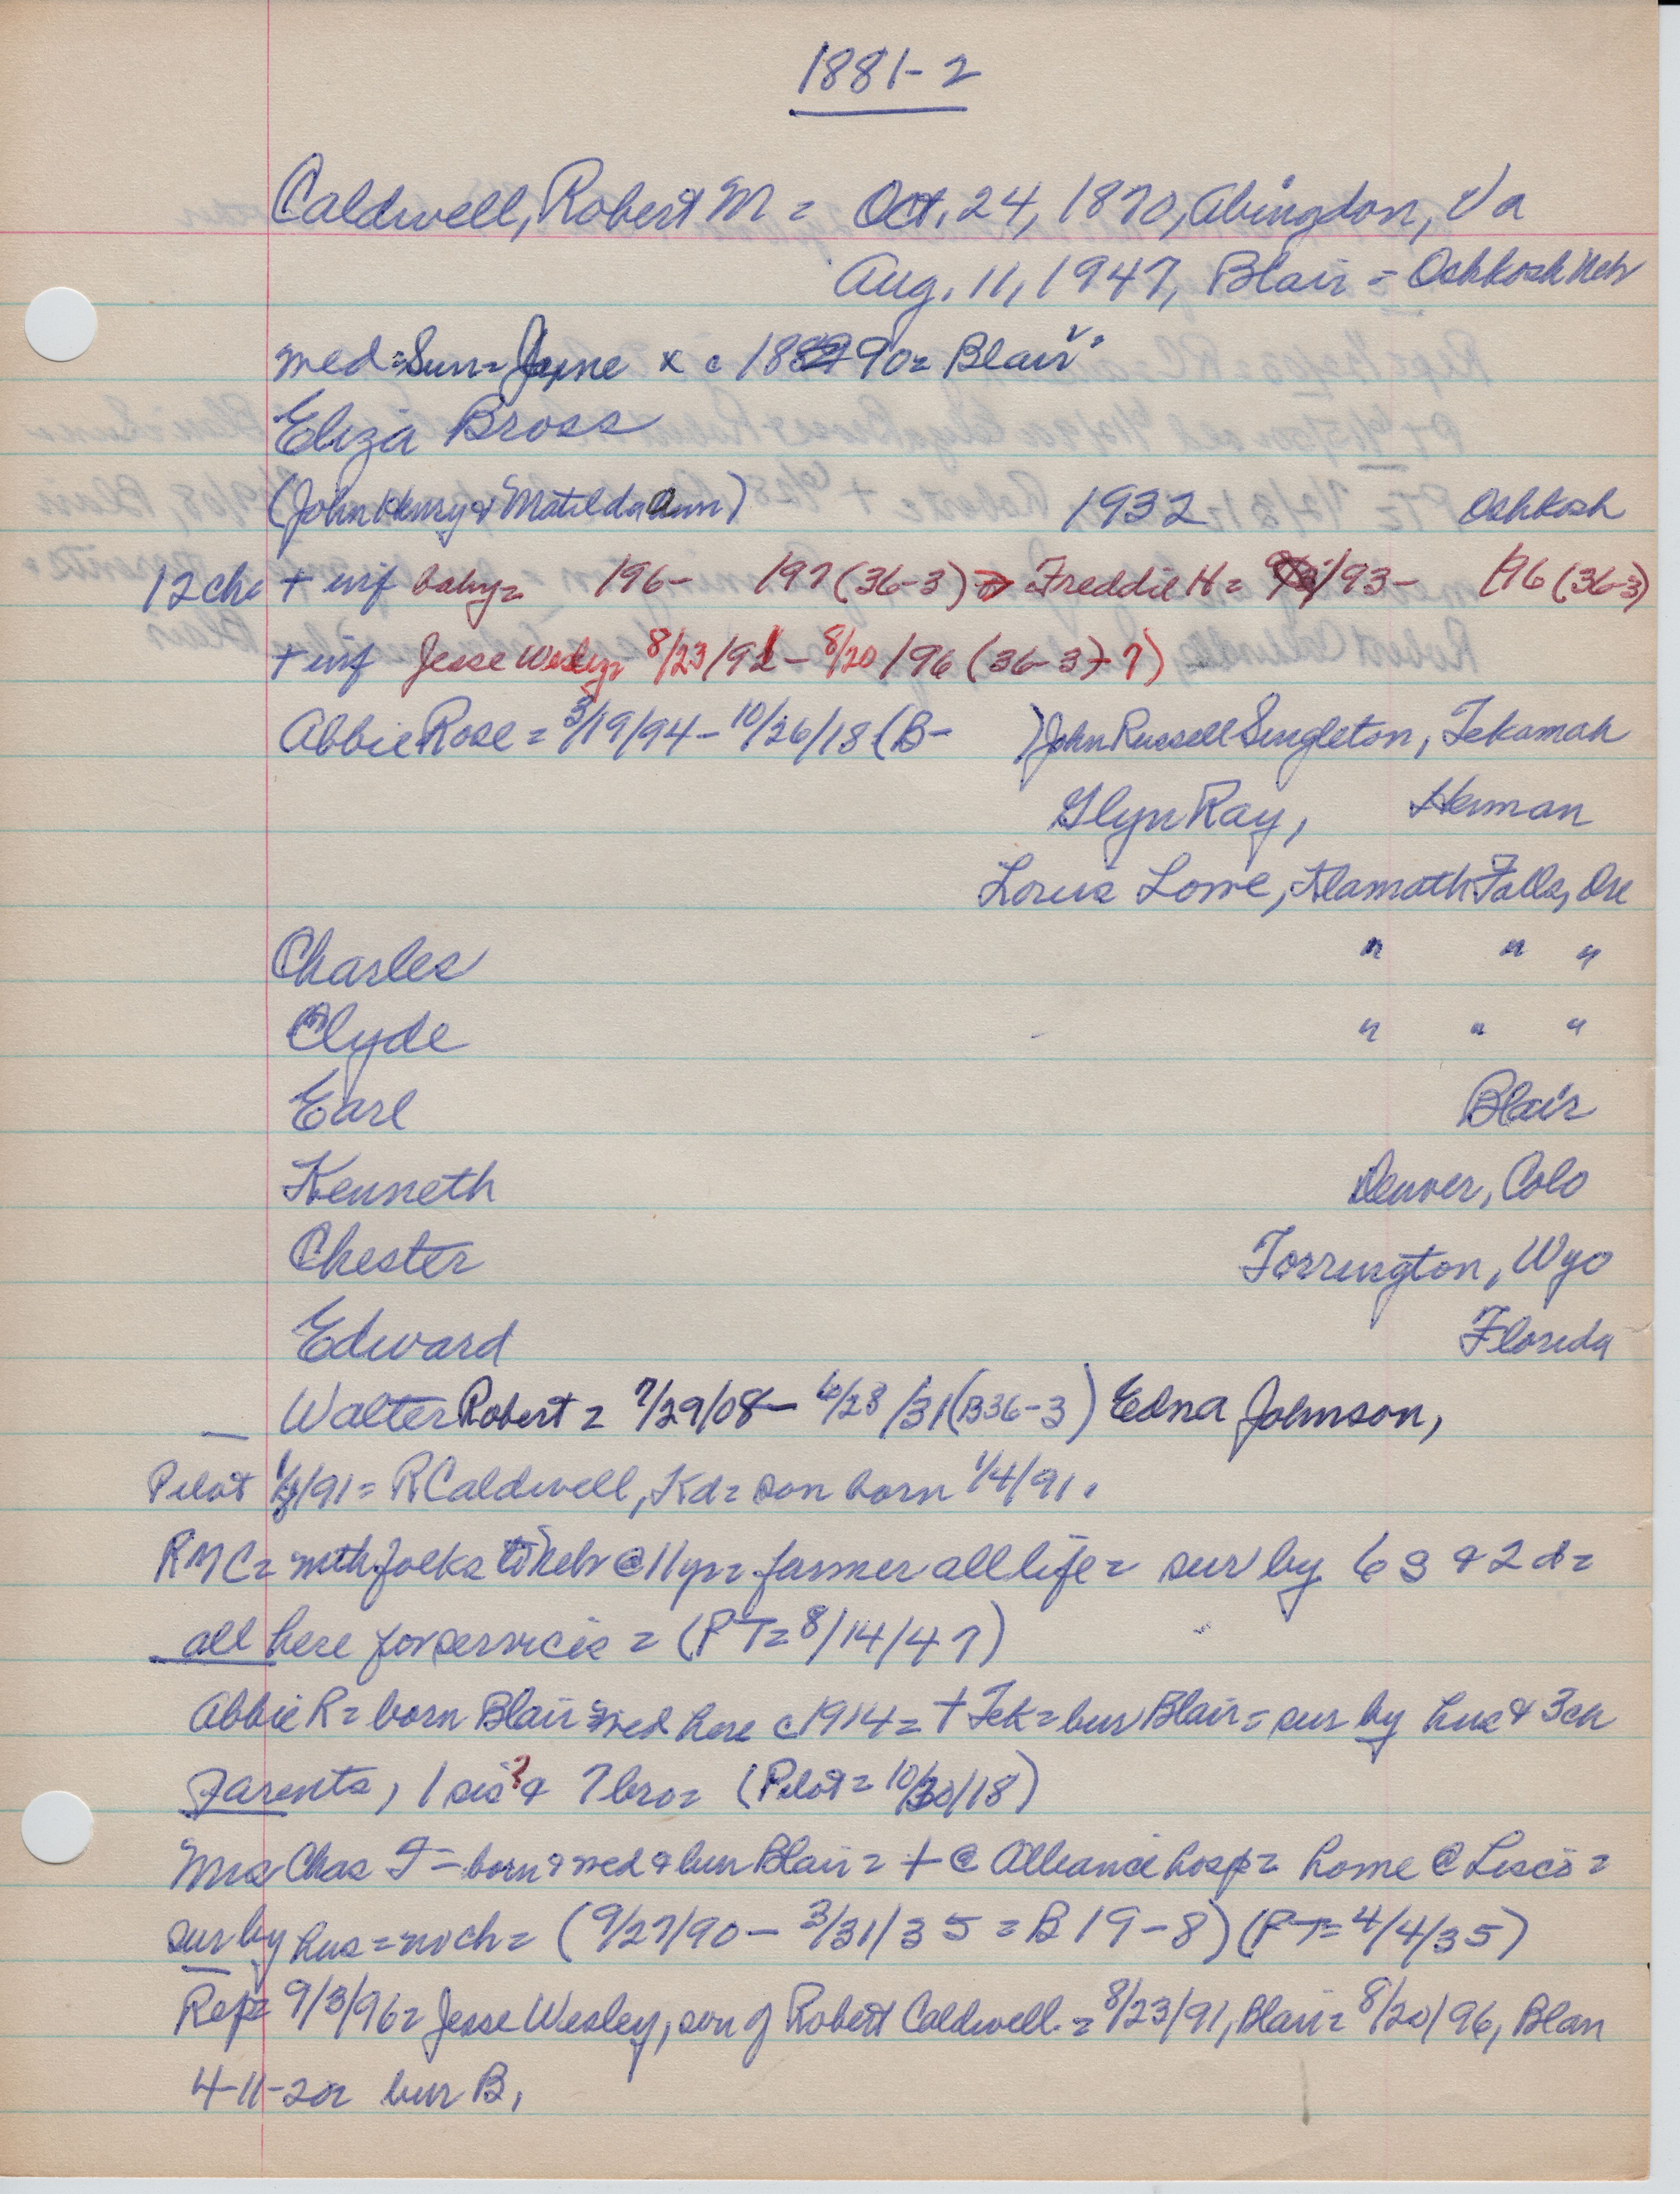 1881-2
Caldwell, Robert M = Oct. 24, 1870, Abingdon, Va
Aug. 11, 1947, Blair = Oshkosh Neb
med = Sun = Jayne x c 1889 90 = Blair
Eliza Bross
(John Henry & Matilda Ann) 1932 Oshkosh
12 ch = + inf baby = /96 - /97 (36-3) Freddie H = /93 - /96 (36-3)
+ inf Jesse Wesley = 8/23/91 - 8/20/96 (36-3) - 7)
Abbie Rose = 3/19/94 - 10/26/18 (B- ) John Russell Singleton, Tekamah
Glyn Ray, Herman
Lorus Lowe, Klamath Falls, Ore
Charles " " "
Clyde " " "
Earl Blair
Kenneth Denver, Colo
Chester Torrington, Wyo
Edward Florida
Walter Robert = 7/29/08 - 6/28/31 (B36-3) Edna Johnson,
Pilot 1/8/91 = R Caldwell, Kd = son born 1/4/91.
RMC = with folks to Neb @ 11 yr = farmer all life = sur by 6 s & 2 d =
all here for services = (PT = 8/14/47)
Abbie R = born Blair = med here c 1914 = + Tek = bur Blair = sur by hus & 3 ch
Parents, 1 sis? & 7 bro = (Pilot = 10/30/18)
Mrs Chas T - born & med & bur Blair = + @ Alliance hosp = home @ Lisco =
sur by hus = no ch = (9/27/90 - 3/31/35 = B 19-8) (PT = 4/4/35)
Rep = 9/3/96 = Jesse Wesley, son of Robert Caldwell = 8/23/91, Blair = 8/20/96, Blair
4-11-2 or bur B,